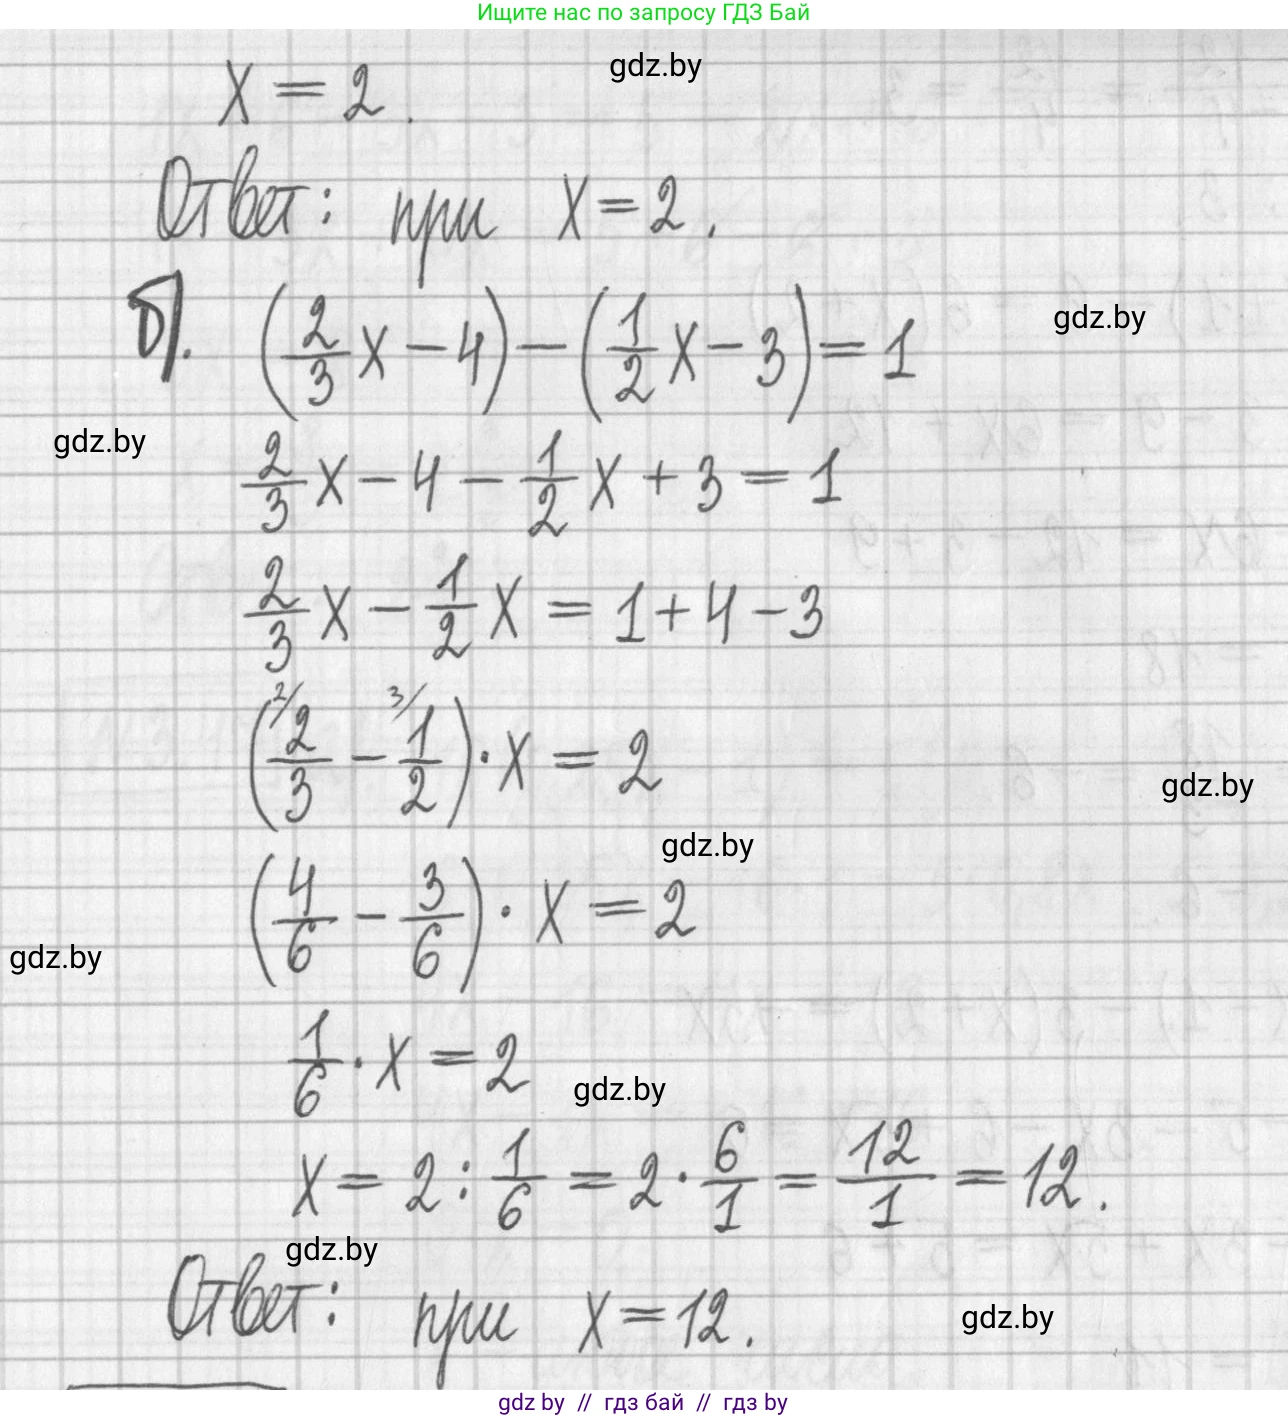 Ищите нас по запросу ГДЗ Бай
gdz.by
x = 2.
Ответ: при x = 2.
б). (2/3 x - 4) - (1/2 x - 3) = 1
gdz.by
gdz.by
2/3 x - 4 - 1/2 x + 3 = 1
2/3 x - 1/2 x = 1 + 4 - 3
(2/ 2/3 - 3/ 1/2) · x = 2
gdz.by
gdz.by
(4/6 - 3/6) · x = 2
gdz.by
1/6 · x = 2
gdz.by
x = 2 : 1/6 = 2 · 6/1 = 12/1 = 12.
gdz.by
Ответ: при x = 12.
gdz.by
gdz by // гдз бай // гдз by